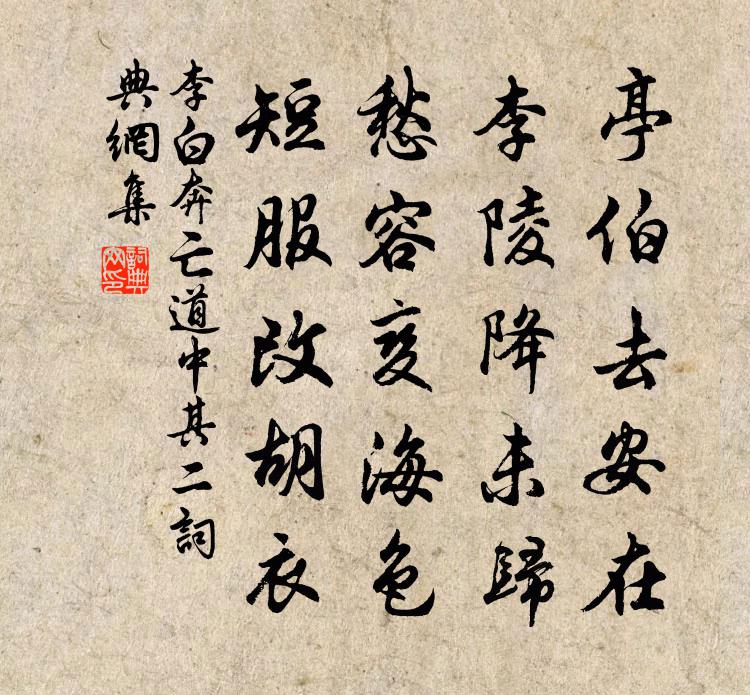 亭伯去安在
李陵降未歸
愁容变海色
短服改胡衣
李白奔亡道中其二詞
典網集
詞典
网印